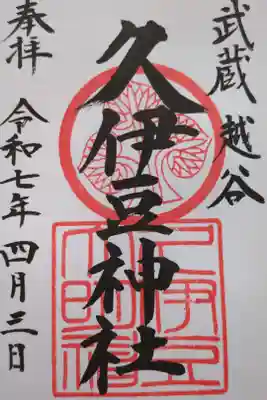 武蔵越谷
久伊豆神社
奉拝
令和七年四月三日